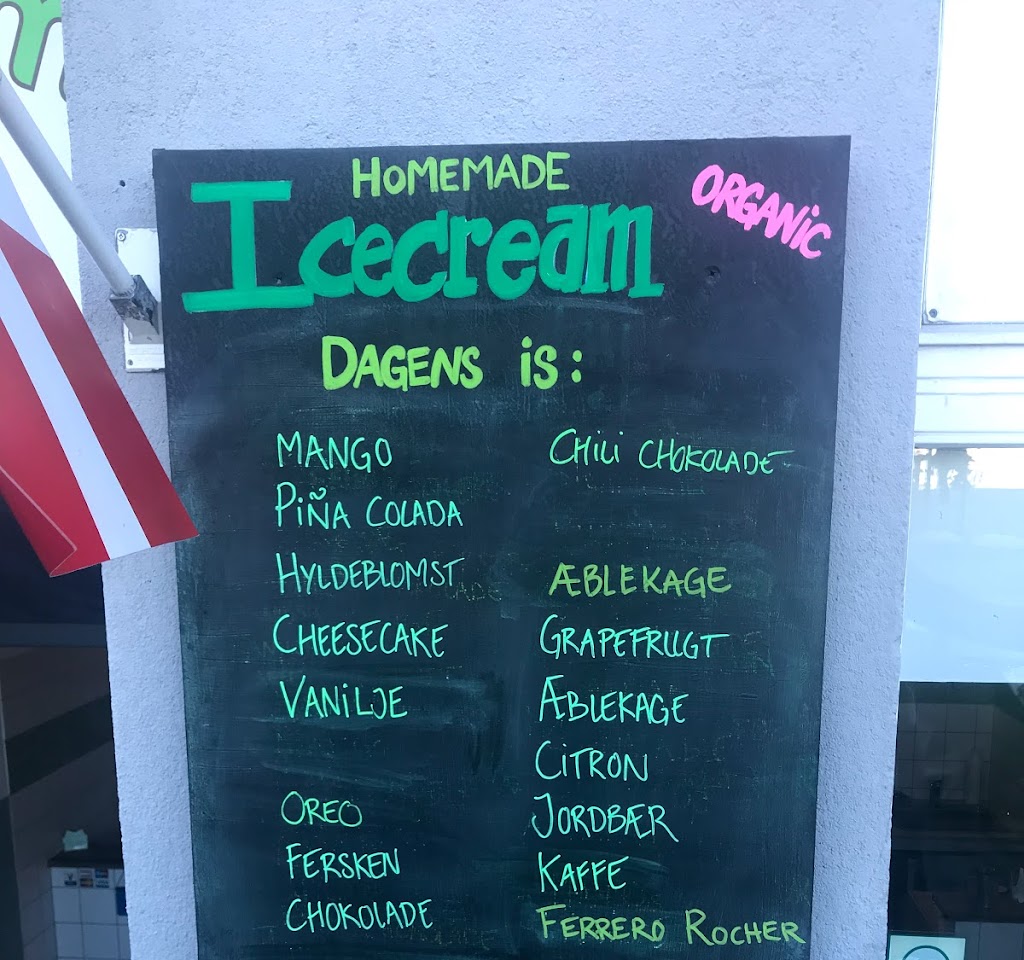 HOMEMADE
Icecream
ORGANIC
DAGENS is:
MANGO
PIÑA COLADA
HYLDEBLOMST
CHEESECAKE
VANILJE
OREO
FERSKEN
CHOKOLADE
CHILI CHOKOLADE
ÆBLEKAGE
GRAPEFRUGT
ÆBLEKAGE
CITRON
JORDBÆR
KAFFE
FERRERO ROCHER